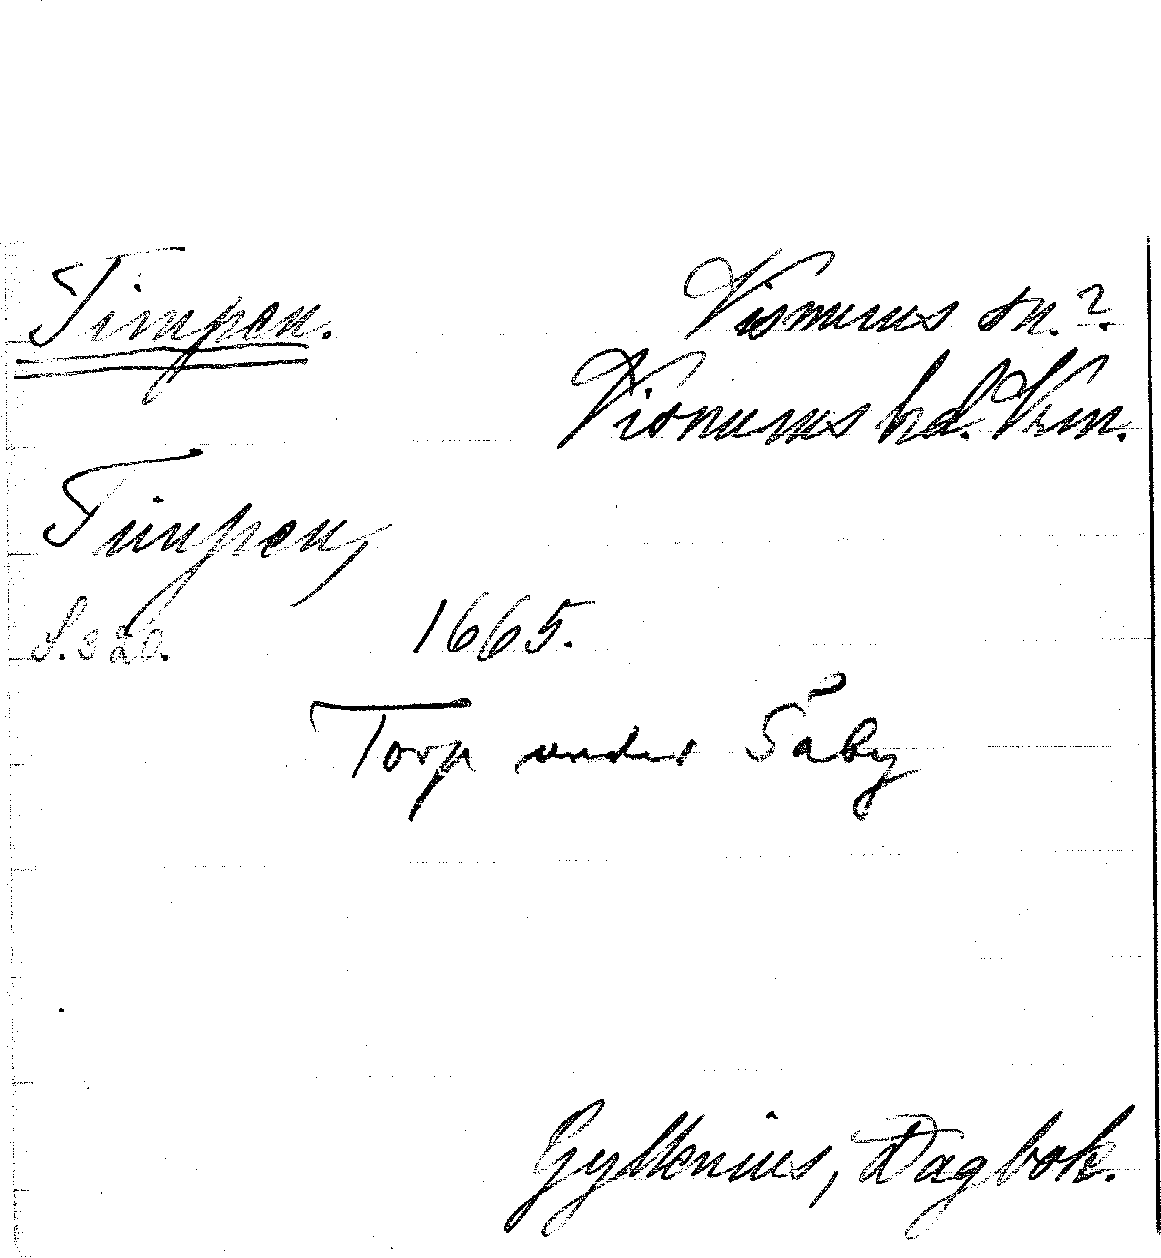 Timpen.
Visnums sn.?
Visnums hd. Vrm.
Timpen,
S. 320. 1665.
Torp under Säby
Gyllenius, Dagbok.